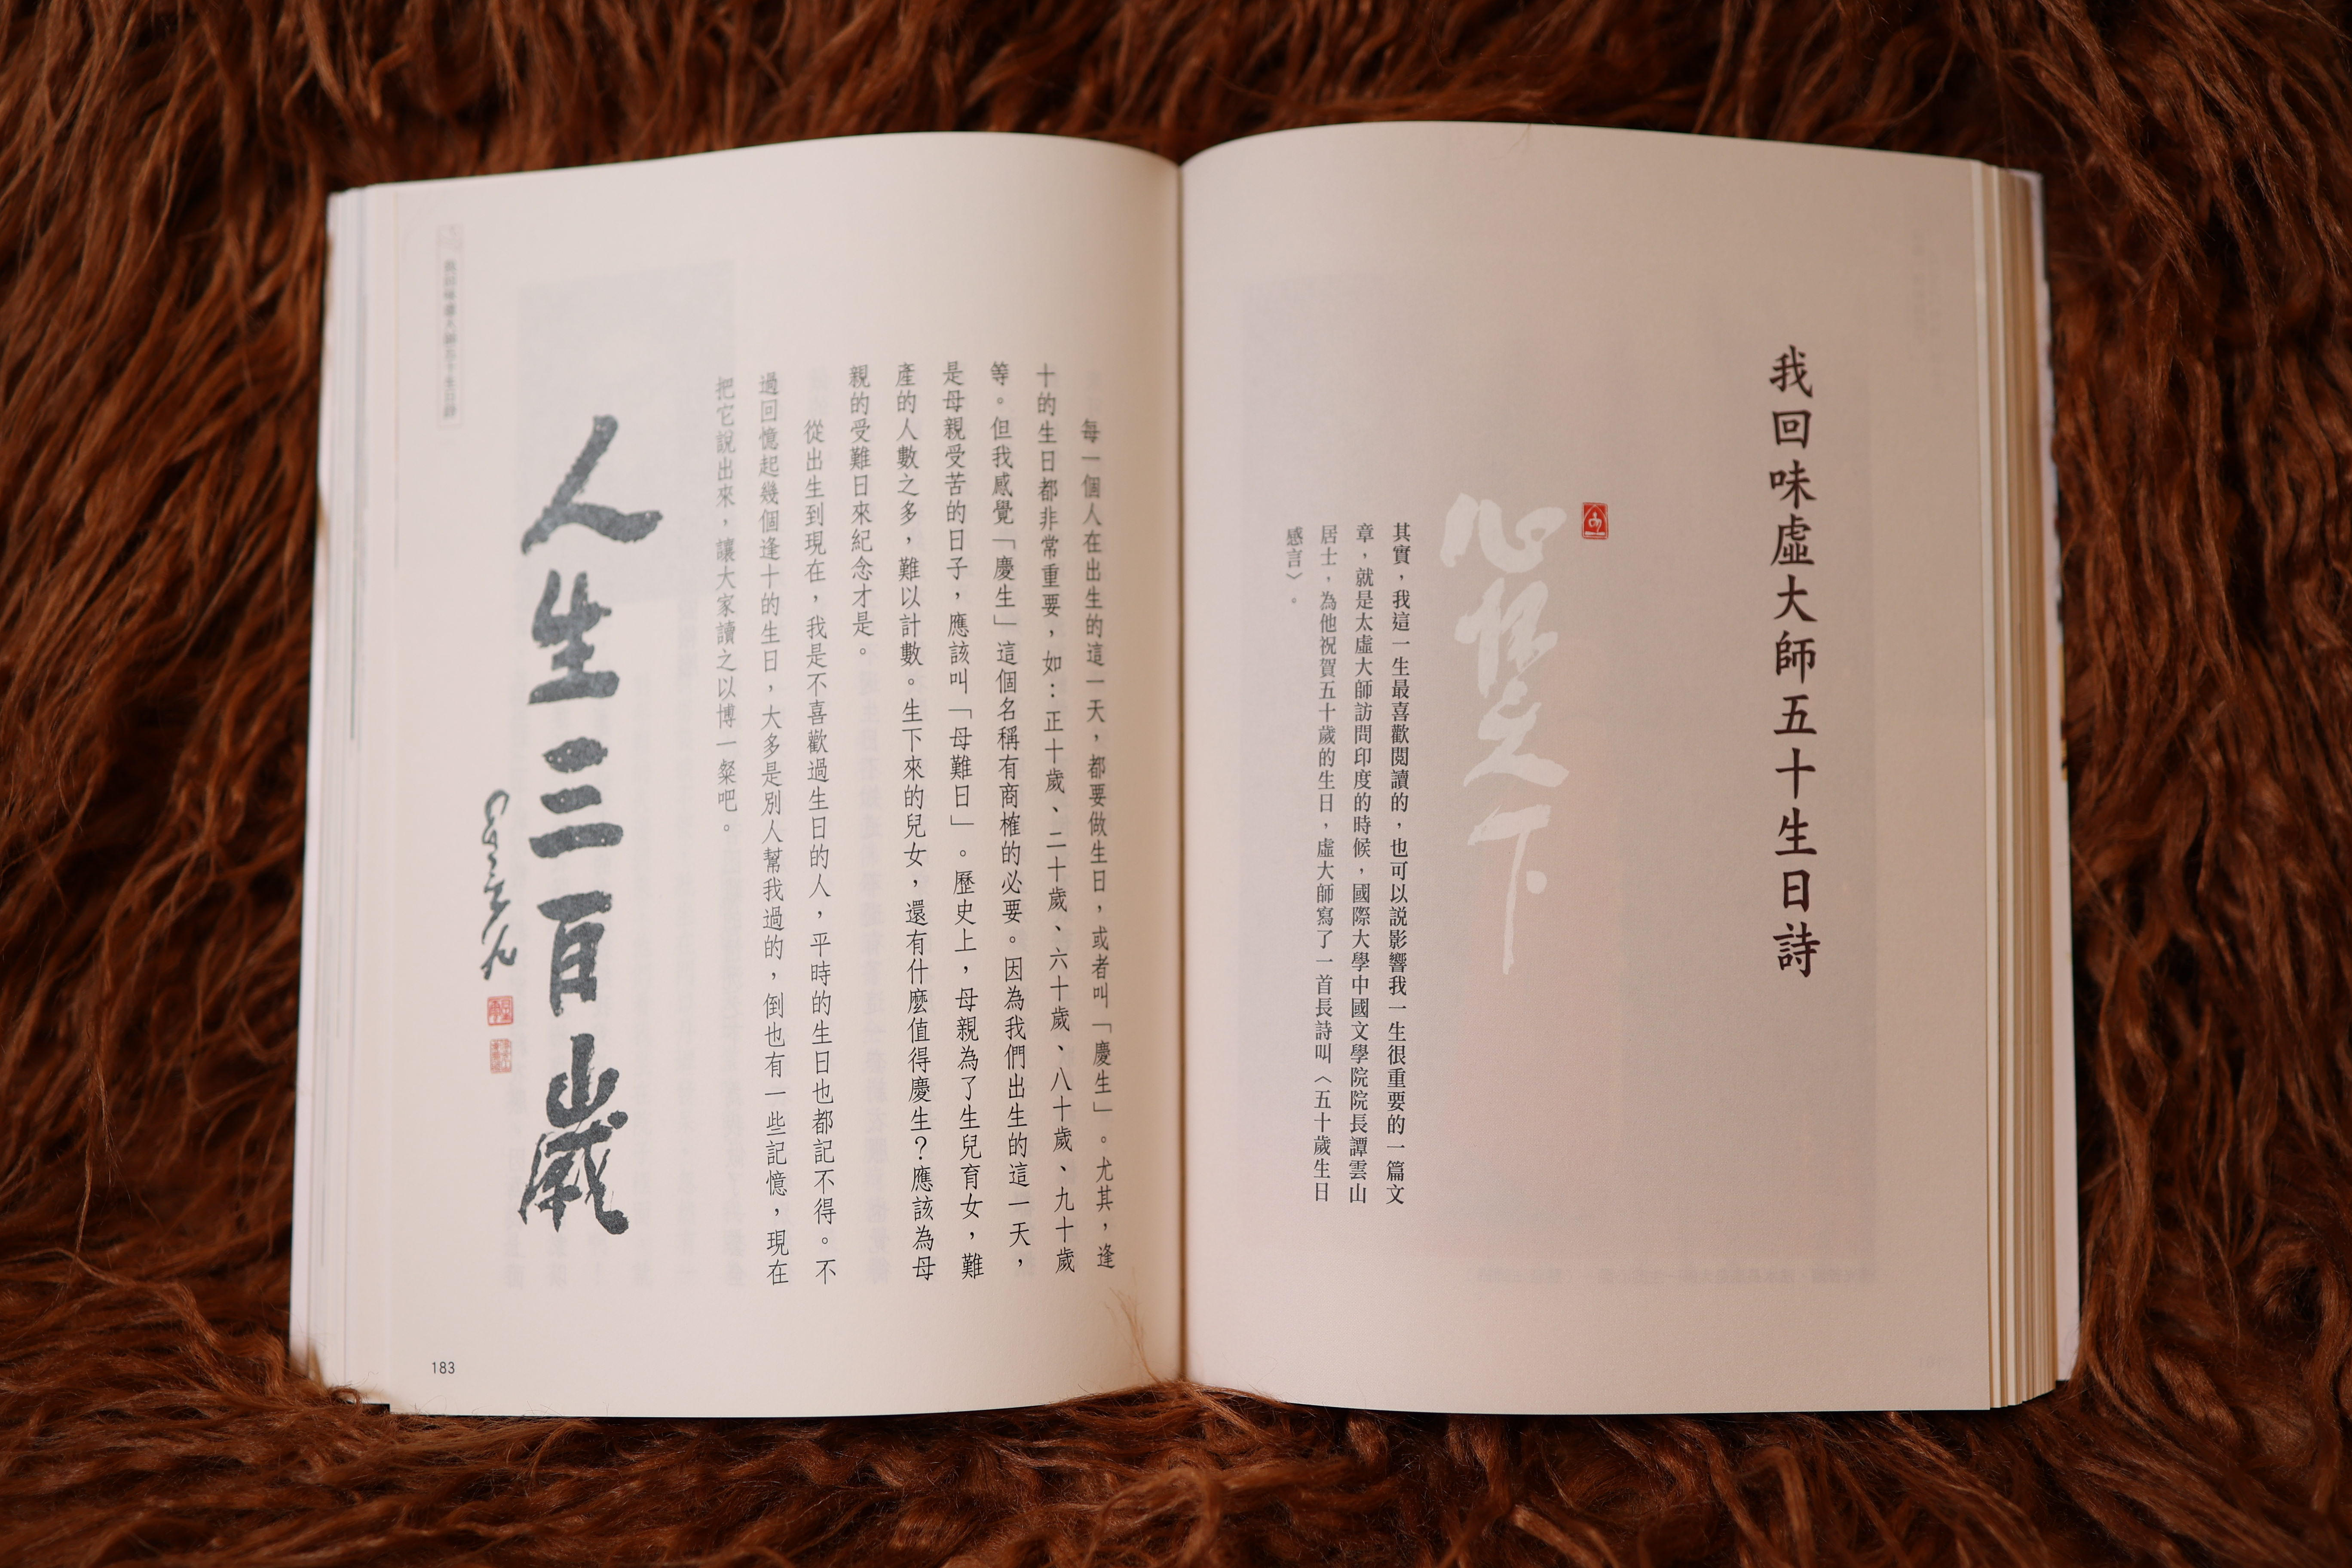 我回味虛大師五十生日詩
心懷天下
其實，我這一生最喜歡閱讀的，也可以説影響我一生很重要的一篇文
章，就是太虛大師訪問印度的時候，國際大學中國文學院院長譚雲山
居士，為他祝賀五十歲的生日，虛大師寫了一首長詩叫〈五十歲生日
感言〉。
每一個人在出生的這一天，都要做生日，或者叫「慶生」。尤其，逢
十的生日都非常重要，如：正十歲、二十歲、六十歲、八十歲、九十歲
等。但我感覺「慶生」這個名稱有商榷的必要。因為我們出生的這一天，
是母親受苦的日子，應該叫「母難日」。歷史上，母親為了生兒育女，難
產的人數之多，難以計數。生下來的兒女，還有什麼值得慶生？應該為母
親的受難日來紀念才是。
從出生到現在，我是不喜歡過生日的人，平時的生日也都記不得。不
過回憶起幾個逢十的生日，大多是別人幫我過的，倒也有一些記憶，現在
把它說出來，讓大家讀之以博一粲吧。
人生三百歲
183